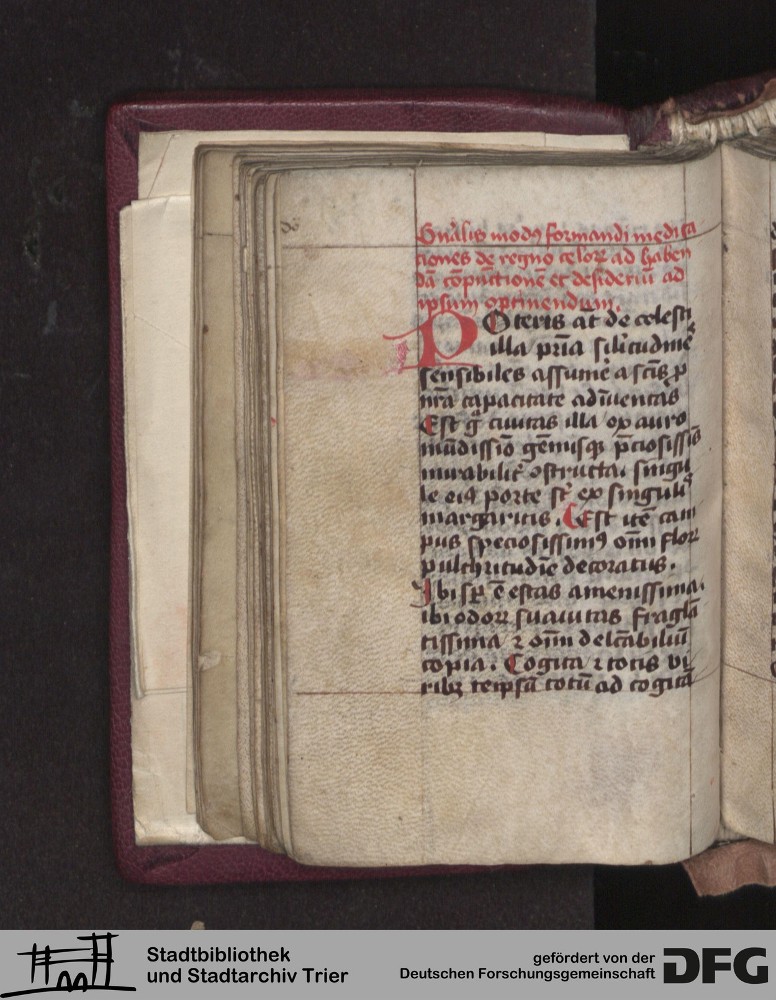 Gn̄alis modꝰ formandi medita
tiones de regno celoꝝ ad haben
dā cōpūctionē et desideriū ad
ipsum optinendum.
POteris aūt de celesti
illa pr̄ia sil̄itudīes
sensibiles assumē a sctīs p
nr̄a capacitate adīuentas
Est g̊ ciuitas illa ex auro
mūdissīo gēmisqꝫ p̄ciosissīs
mirabilit̄ ꝯstructa. singu
le eiꝰ porte sūt ex singulis
margaritis. Est itē cam
pus speciosissimꝰ om̄i floꝝ
pulchritudīe decoratus.
Ibi sꝑ ē estas amenissima.
ibi odoꝝ suauitas fraglā
tissima ⁊ om̄i delc̄abiliū
copia. Cogita ⁊ totis vi
ribꝫ teip̄m totū ad cogitā
Stadtbibliothek
und Stadtarchiv Trier
gefördert von der
Deutschen Forschungsgemeinschaft
DFG